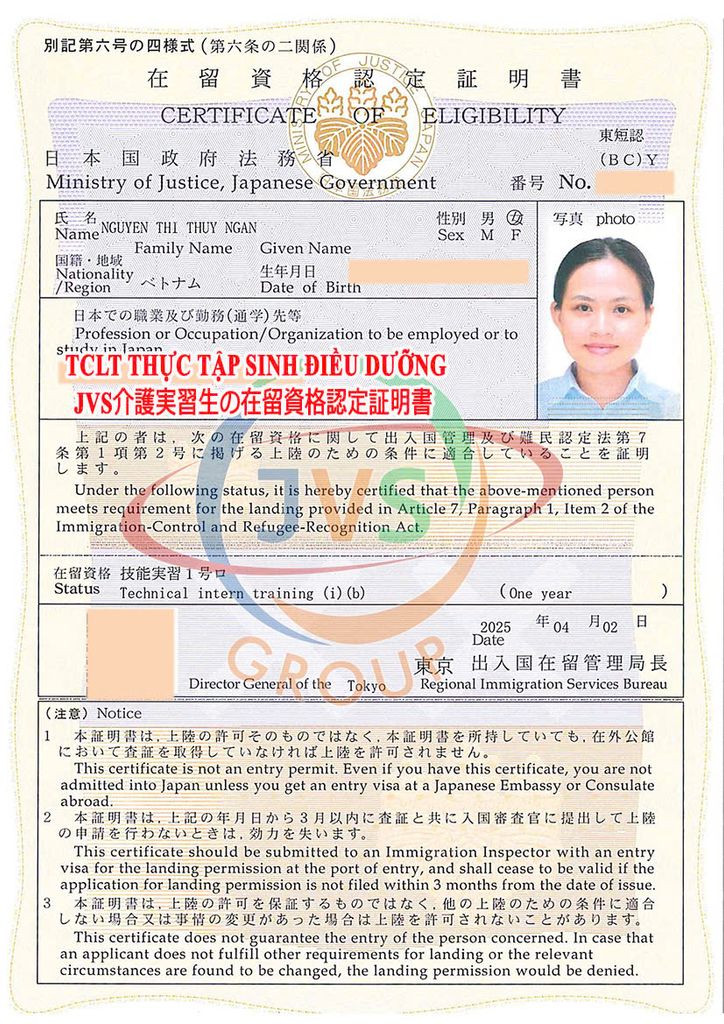 別記第六号の四様式(第六条の二関係)
在留資格認定証明書
CERTIFICATE OF ELIGIBILITY
MINISTRY OF JUSTICE JAPAN
東短認
日本国政府法務省
(BC)Y
Ministry of Justice, Japanese Government
番号 No.
氏名 NGUYEN THI THUY NGAN
Name
Family Name Given Name
性別 男 女
Sex M F
写真 photo
国籍・地域
Nationality
/Region ベトナム
生年月日
Date of Birth
日本での職業及び勤務(通学)先等
Profession or Occupation/Organization to be employed or to
study in Japan
TCLT THỰC TẬP SINH ĐIỀU DƯỠNG
JVS介護実習生の在留資格認定証明書
上記の者は,次の在留資格に関して出入国管理及び難民認定法第7
条第1項第2号に掲げる上陸のための条件に適合していることを証明
します。
Under the following status, it is hereby certified that the above-mentioned person
meets requirement for the landing provided in Article 7, Paragraph 1, Item 2 of the
Immigration-Control and Refugee-Recognition Act.
JVS
GROUP
在留資格 技能実習1号ロ
Status Technical intern training (i)(b) (One year )
2025 年 04 月 02 日
Date
東京 出入国在留管理局長
Director General of the Tokyo Regional Immigration Services Bureau
(注意) Notice
1 本証明書は,上陸の許可そのものではなく,本証明書を所持していても,在外公館
において査証を取得していなければ上陸を許可されません。
This certificate is not an entry permit. Even if you have this certificate, you are not
admitted into Japan unless you get an entry visa at a Japanese Embassy or Consulate
abroad.
2 本証明書は,上記の年月日から3月以内に査証と共に入国審査官に提出して上陸
の申請を行わないときは,効力を失います。
This certificate should be submitted to an Immigration Inspector with an entry
visa for the landing permission at the port of entry, and shall cease to be valid if the
application for landing permission is not filed within 3 months from the date of issue.
3 本証明書は,上陸の許可を保証するものではなく,他の上陸のための条件に適合
しない場合又は事情の変更があった場合は上陸を許可されないことがあります。
This certificate does not guarantee the entry of the person concerned. In case that
an applicant does not fulfill other requirements for landing or the relevant
circumstances are found to be changed, the landing permission would be denied.